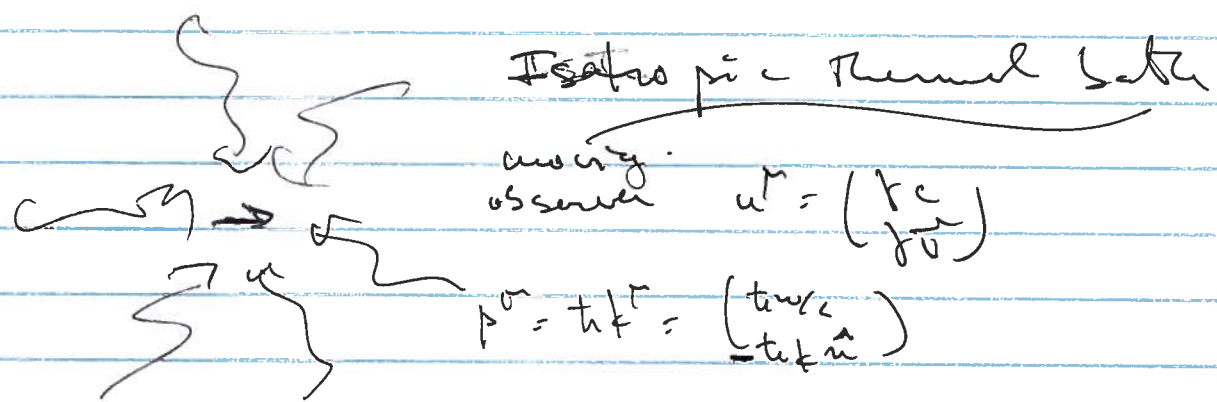 Isotropic thermal bath
moving
observer u^μ = (γc / γv⃗)
p^μ = ħk^μ = (ħω/c / -ħk n̂)